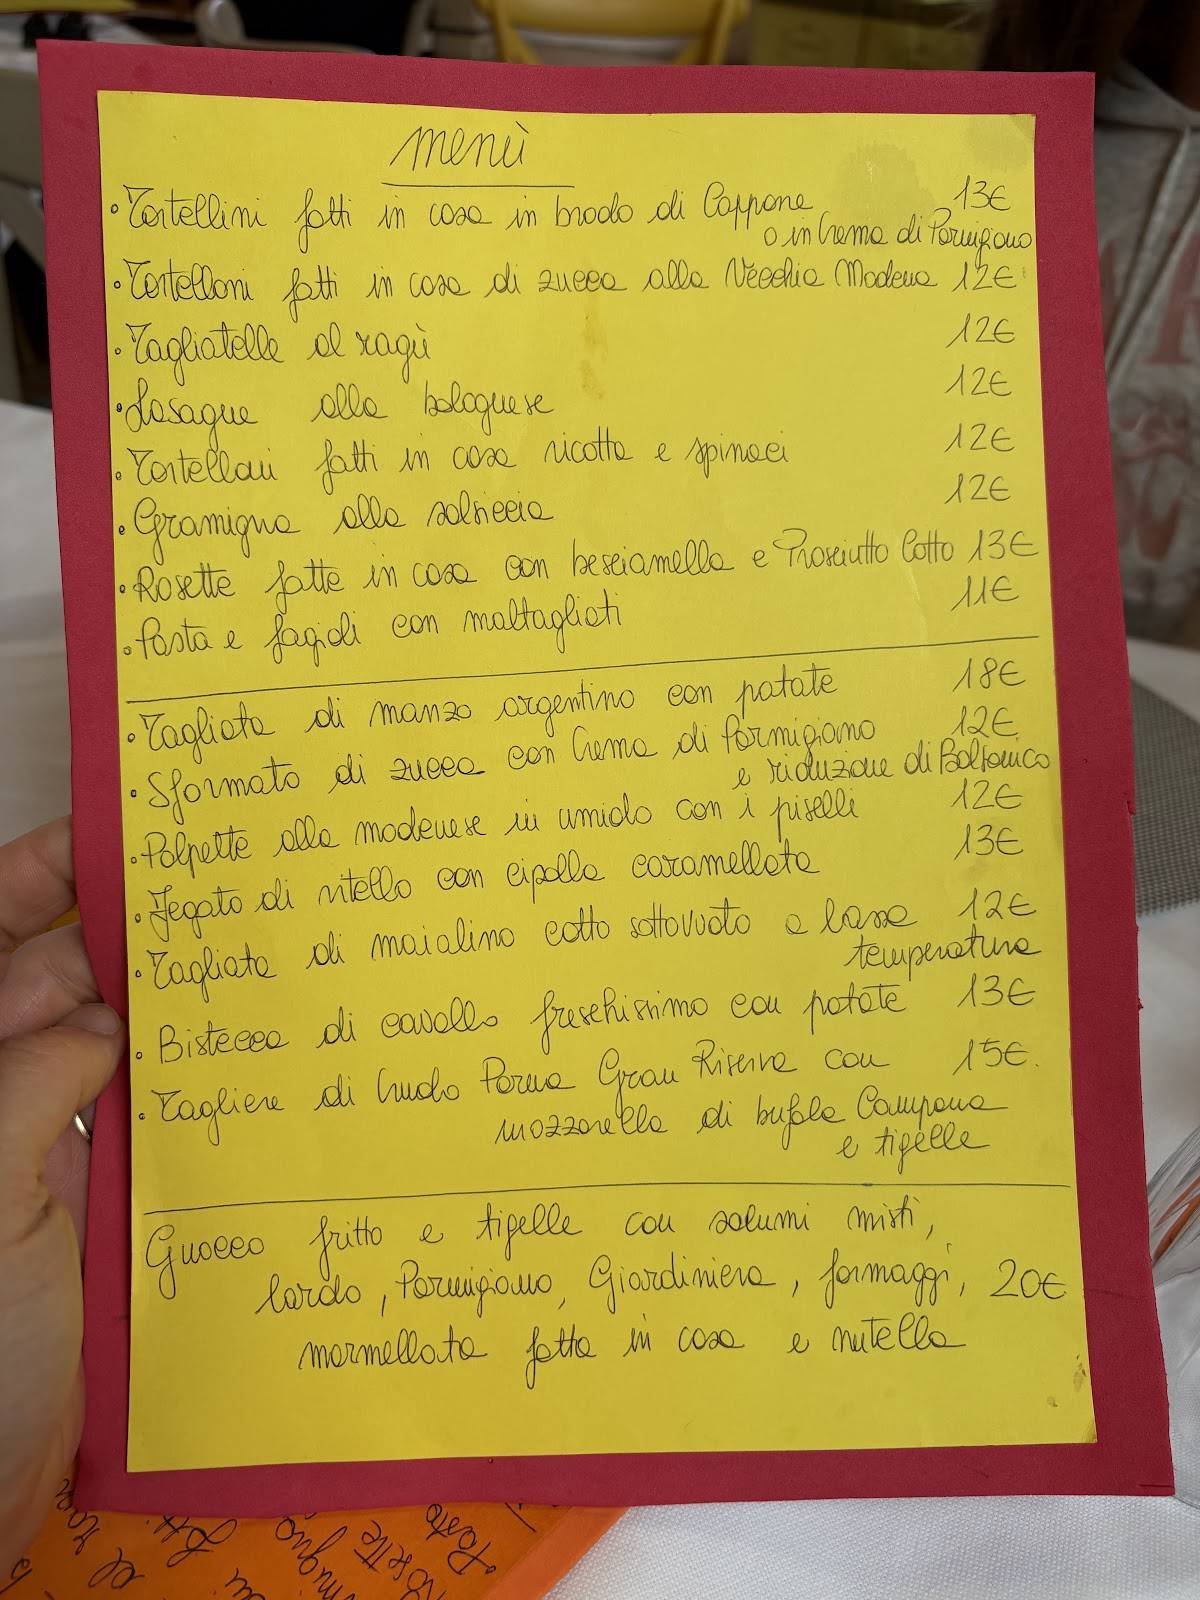 menù
• Tortellini fatti in casa in brodo di Cappone 13€
o in Crema di Parmigiano
• Tortelloni fatti in casa di zucca alla Vecchia Modena 12€
• Tagliatelle al ragù 12€
• Lasagne alla bolognese 12€
• Tortelloni fatti in casa ricotta e spinaci 12€
• Gramigna alla salsiccia 12€
• Rosette fatte in casa con besciamella e Prosciutto Cotto 13€
• Pasta e fagioli con maltagliati 11€
• Tagliata di manzo argentino con patate 18€
• Sformato di zucca con Crema di Parmigiano 12€
e riduzione di Balsamico
• Polpette alla modenese in umido con i piselli 12€
• Fegato di vitello con cipolla caramellata 13€
• Tagliata di maialino cotto sottovuoto a bassa 12€
temperatura
• Bistecca di cavallo freschissimo con patate 13€
• Tagliere di Crudo Parma Gran Riserva con 15€.
mozzarella di bufala Campana
e tigelle
Gnocco fritto e tigelle con salumi misti,
lardo, Parmigiano, Giardiniera, formaggi, 20€
marmellata fatta in casa e nutella